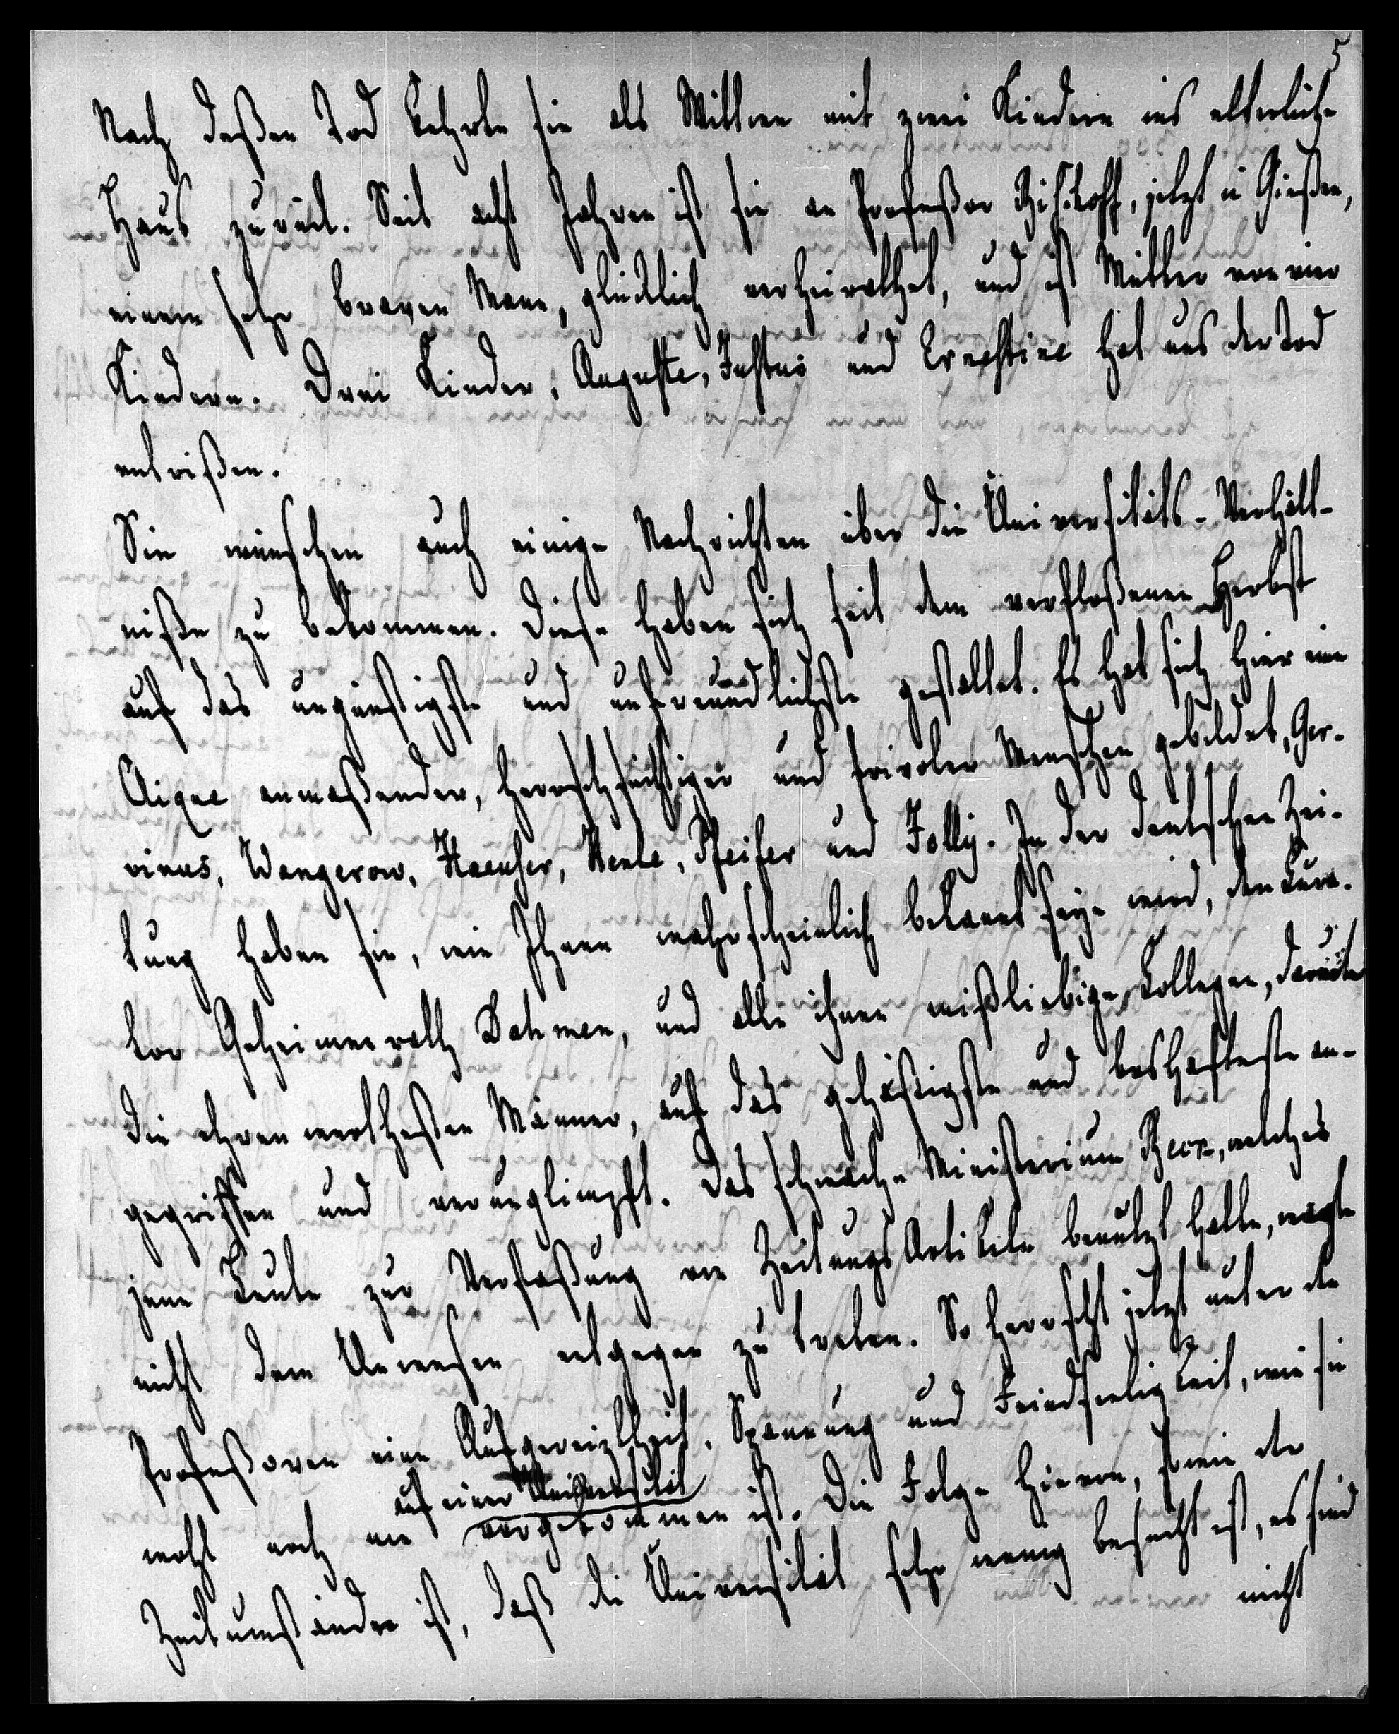 5
Nach deßen Tod kehrte sie als Wittwe mit zwei Kindern ins elterliche
Haus zurück. Seit acht Jahren ist sie an Profeßor Bischoff, jetzt in Gießen,
einem sehr braven Mann, glücklich verheirathet, und ist Mutter von vier
Kindern. Drei Kinder, Auguste, Justus und Ernestine hat uns der Tod
entrißen.
Sie wünschen auch einige Nachrichten über die Universitäts-Verhält-
niße zu bekommen. Diese haben sich seit dem verfloßenen Herbst
auf das ungünstigste und unfreundlichste gestaltet. Es hat sich hier eine
Clique anmaßender, herrschsüchtiger und frivoler Menschen gebildet, Ger-
vinus, Wangerow, Haeußer, Henle, Pfeifer und Jolly. In der deutschen Zei-
tung haben sie, wie Ihnen wahrscheinlich bekannt seyn wird, den Cura-
tor Geheimerrath Dahmen, und alle ihnen mißliebige Collegen, darunter
die ehrenwerthesten Männer, auf das gehäßigste und boshafteste an-
gegriffen und verunglimpft. Das schwache Ministerium Beck, welches
jene Leute zur Verfaßung von Zeitungs Artikeln benutzt hatte, wagte
nicht dem Unwesen entgegen zu treten. So herrscht jetzt unter den
Profeßoren eine Aufgereiztheit, Spannung und Feindseeligkeit, wie sie
auf einer Universität
wohl noch nie vorgekommen ist. Die Folge hievon, sowie der
Zeitumstände ist, daß die Universität sehr wenig besucht ist, es sind
nicht